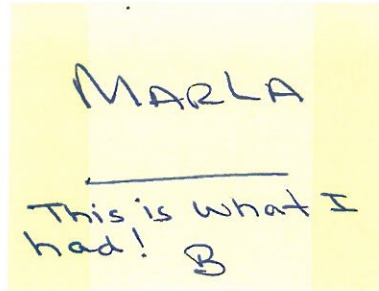 MARLA
This is what I
had!
B